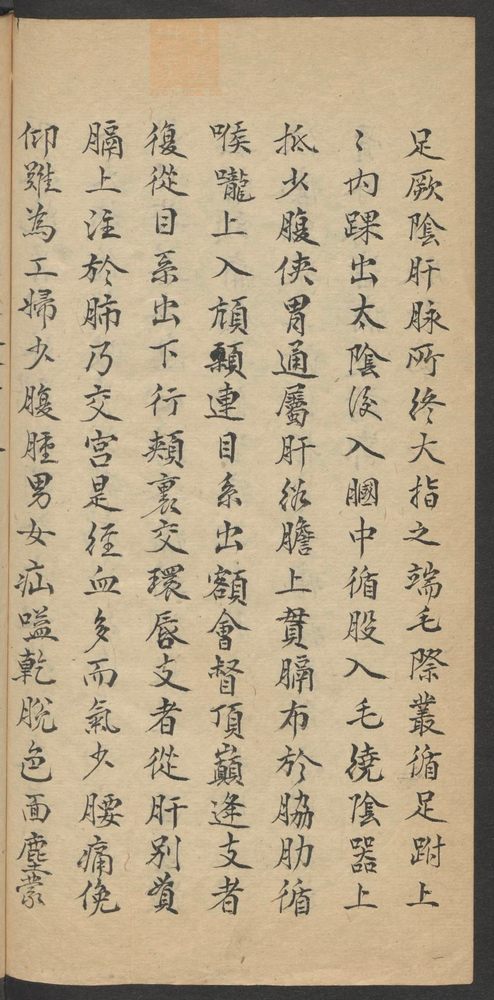 足厥陰肝脉所終大指之端毛際叢循足跗上
〻内踝出太陰後入膕中循股入毛繞陰器上
抵少腹俠胃通屬肝絡膽上貫膈布於脇肋循
喉嚨上入頏顙連目系出額會督頂巔逢支者
復從目系出下行頰裏交環唇支者從肝别貫
膈上注於肺乃交宮是徑血多而氣少腰痛俛
仰難為工婦少腹腫男女疝嗌乾脫色面塵蒙